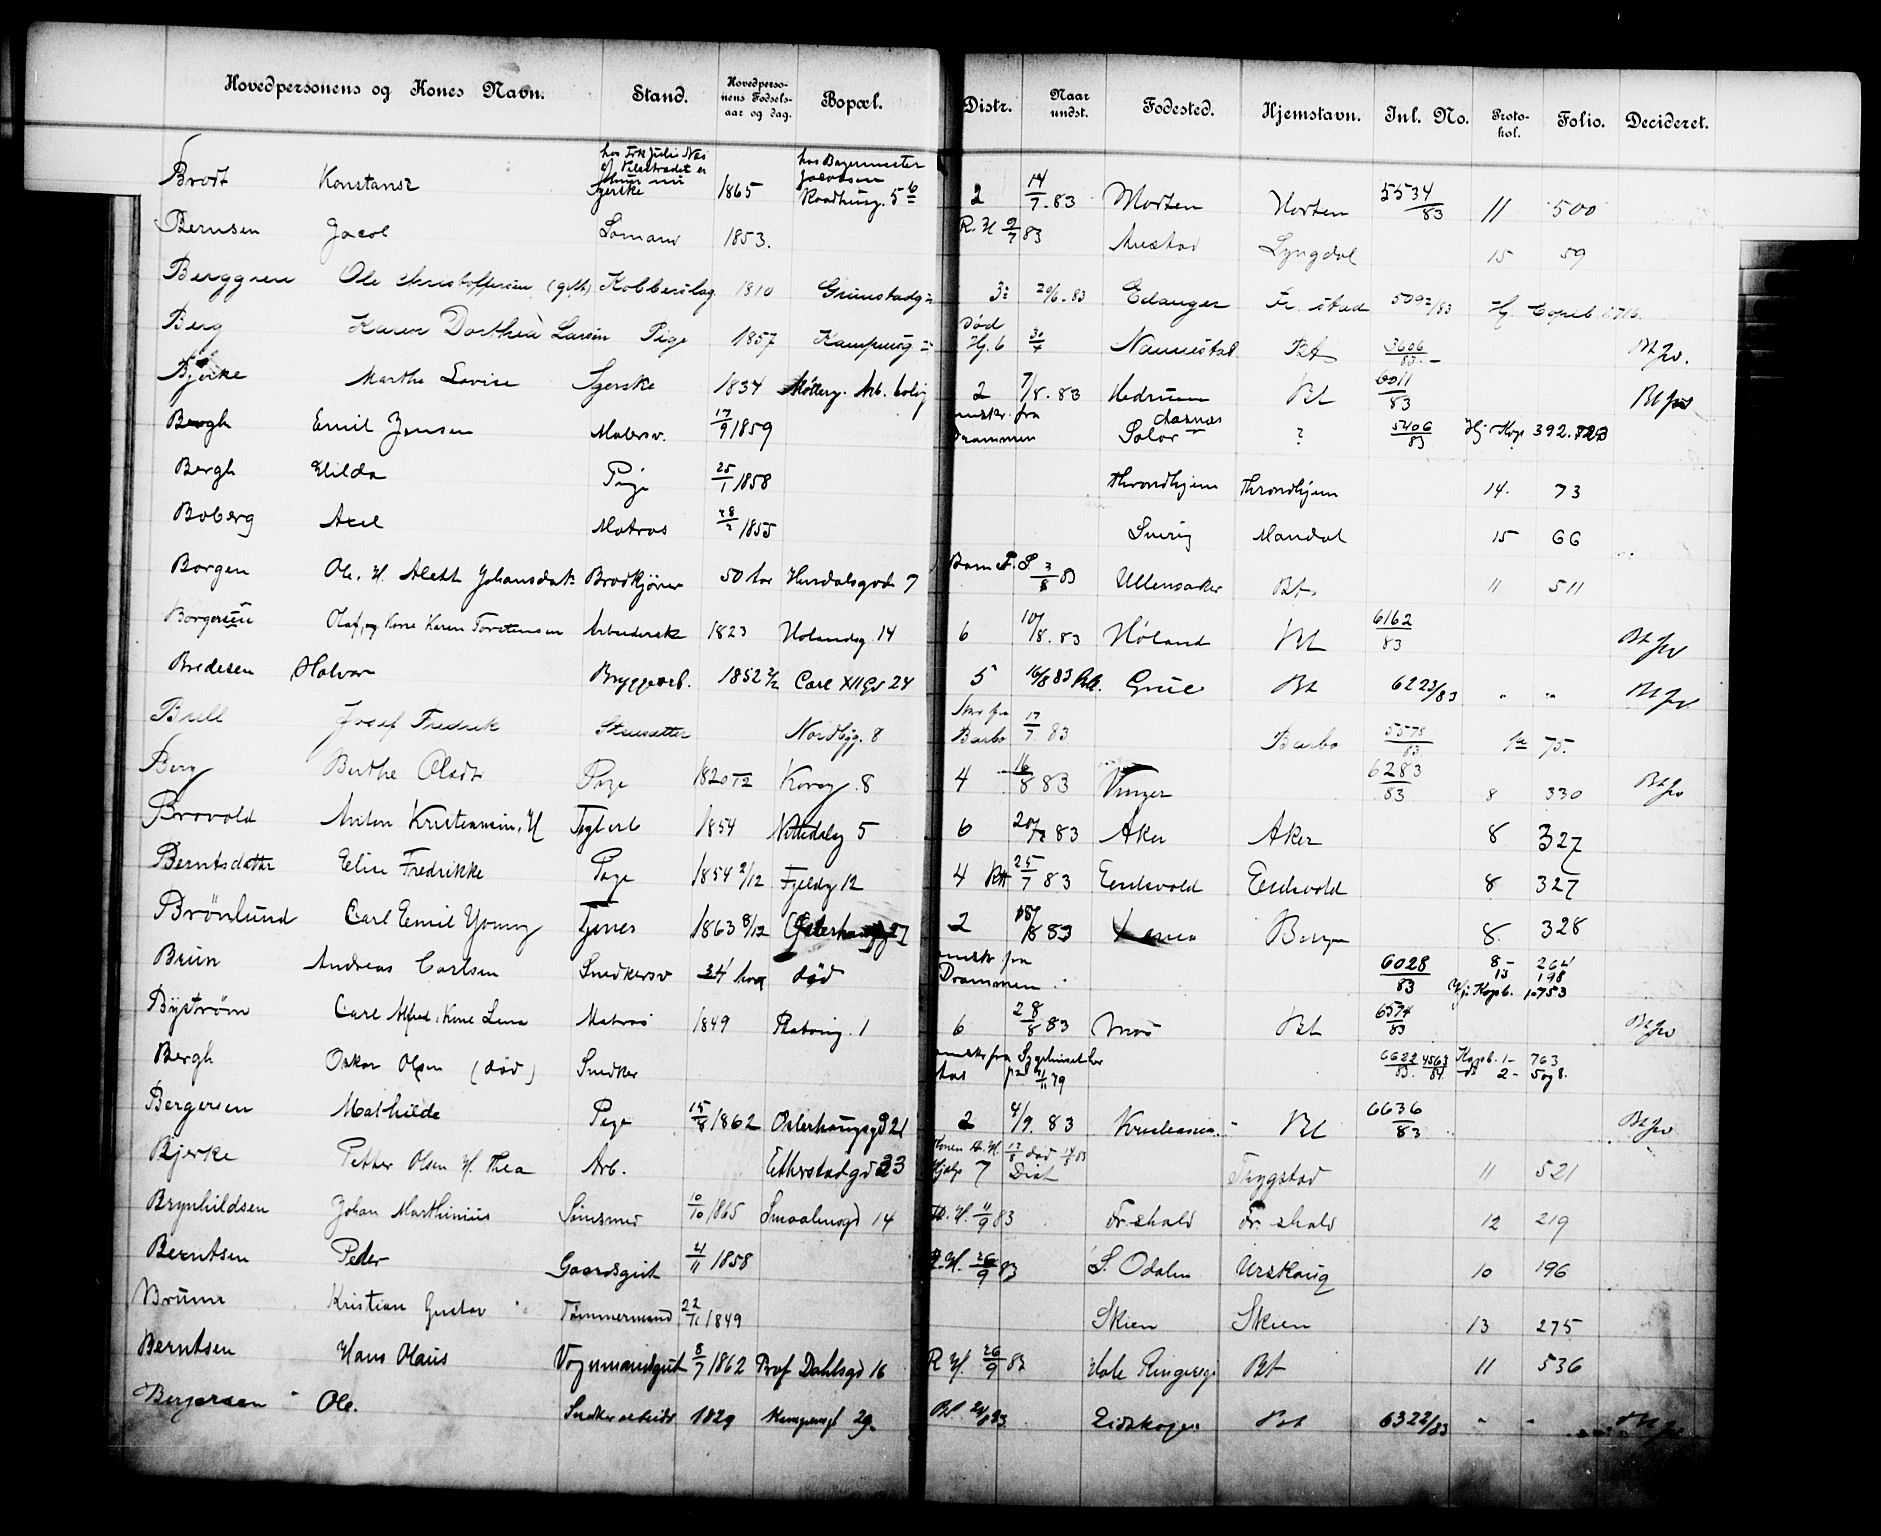 Hovedpersonens og Kones Navn. Stand. Hovedperso-nens Fødsels-aar og dag. Bopæl. Distr. Naar undst. Fødested. Hjemstavn. Inl. No. Proto-kol. Folio. Decideret.
Brodt Konstanse 1865 hos Bagermester Jacobsen Raadhusg. 5 2 14/7. 83 Horten Horten 5534/83 11 500
Bernsen Jacob Sømand 1853. R. H 9/7 83 Lyngdal 15 59
Berggren Ole Christoffersen Kobberslag 1810 Grünstadg 3 20/6. 83 Fr. stad 5092/83 Hj. Copieb 1716.
Berg Karen Dorthea Larsen Pige 1857 Kampensg Død Hj. 6 30/4 Nannestad Bt 3606/83
Bjerke Marthe Lovise Syerske 1834 Møllerg. Arb. bolig 2 7/8. 83 Hedrum Bt 6011/83
Bergh Emil Jensen Malersv. 17/9 1859 undsk. fra Drammen Solør ? 5406/83 Hj Kop 392.
Bergh Hilda Pige 25/1 1858 Throndhjem Throndhjem 14. 73
Boberg Axel Matros 1855 Sverig Mandal 15 66
Borgen Ole. H. Aleth Johansdatr Brødkjører 50 aar Hurdalsgade 7 Barn 3/8 83 Ullensaker Bt. 11 511
Borgersen Olaf, og Kone Karen Torstensen Arbeidersk 1823 Hølandsg 14 6 10/8. 83 Høland Bt 6162/83
Bredesen Halvor Bryggearb. 1852 Carl XII Gd 24 5 16/8 83 Grue Bt 6223/83 " "
Brell Josef Fredrik Stensætter Nordbyg. 8 fra Barbo 17/7 83 Barbo 5578/83 75.
Berg Berthe Olsdt Pige 1820 Korsg. 8 4 16/8 83 Vinger 6283/83 8 330
Brovold Anton Kristiansen, H Teglarb 1854 Nittedalsg 5 6 83 Aker Aker 8 327
Berntsdatter Elise Fredrikke Pige 1854 9/12 Fjeldg 12 4 25/7 83 Eidsvold Eidsvold 8 327
Brönlund Carl Emil Young Tjener 1863 8/12 Osterhausg 27 2 83 Bergen 8. 328
Brun Andreas Carlsen Snedkersv 34 død undsk fra Drammen. 6028/83 8 - 264 13 198 Hj. Kopb. 1.753
Byström Carl Alfred, Kone Lena Matros 1849 Platousg. 1 6 28/8 83 Moss Bt 6574/83
Bergh Oskar Olsen (død) Snedker undsk fra Sygehuset her 6622/83. 4563/84 Kopb. 1- 763 2- 5 og 8.
Bergersen Mathilde Pige 15/8 1862 Osterhausgd 21 2 4/9. 83 Kristiania. Bt 6636/83
Bjerke Petter Olsen H. Thea Arb. Etterstadgd 23 Konen R. H. 13/8 død 14/8 83 Hjelp 7 Dist Trygstad 11 521
Brynhildsen Johan Marthinius 10/10 1865 Smaalensgd 14 R. H. 11/9 83 Fr. shald Fr. shald 12 219
Berntsen Peder Gaardsgut 4/11 1858 R. H. 26/9 83 S. Odalen Urskoug 10 196
Brunn Kristian Gustav Tømmermand 22/11 1849 Skien Skien 13 275
Berntsen Hans Olaus Vognmandsgut 8/7 1862 Prof Dahlsgd 16 R H. 26/9 83 Hole Ringerige Bt 11 536
Bergersen Ole. Snedkerarbeid 1829 Kampensgd 29. Eidskogen Bt 6322/83 " "